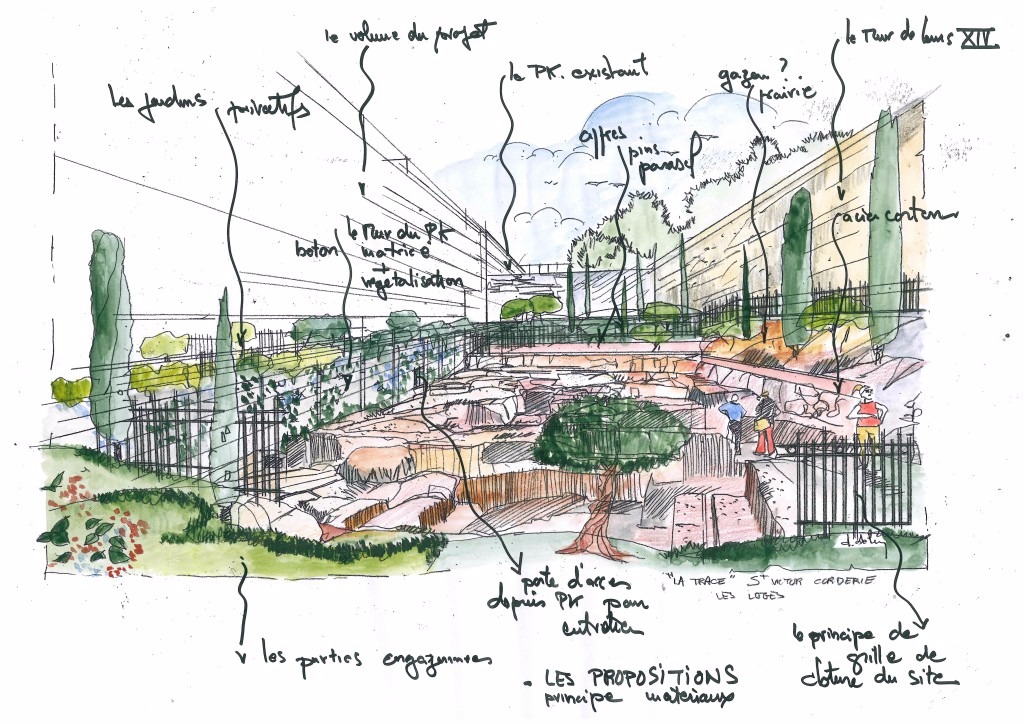 le volume du projet
le mur de Louis XIV.
le PK. existant
gazon ?
prairie
Les jardins privatifs
cyprès
pins
parasol
acier corten
le mur du PK
beton matricé
+
végétalisation
porte d'accès
depuis PK pour
entretien
"LA TRACE" St VICTOR CORDERIE
LES LOGES
les parties engazonnées
le principe de
grille de
cloture du site
. LES PROPOSITIONS
principe materiaux